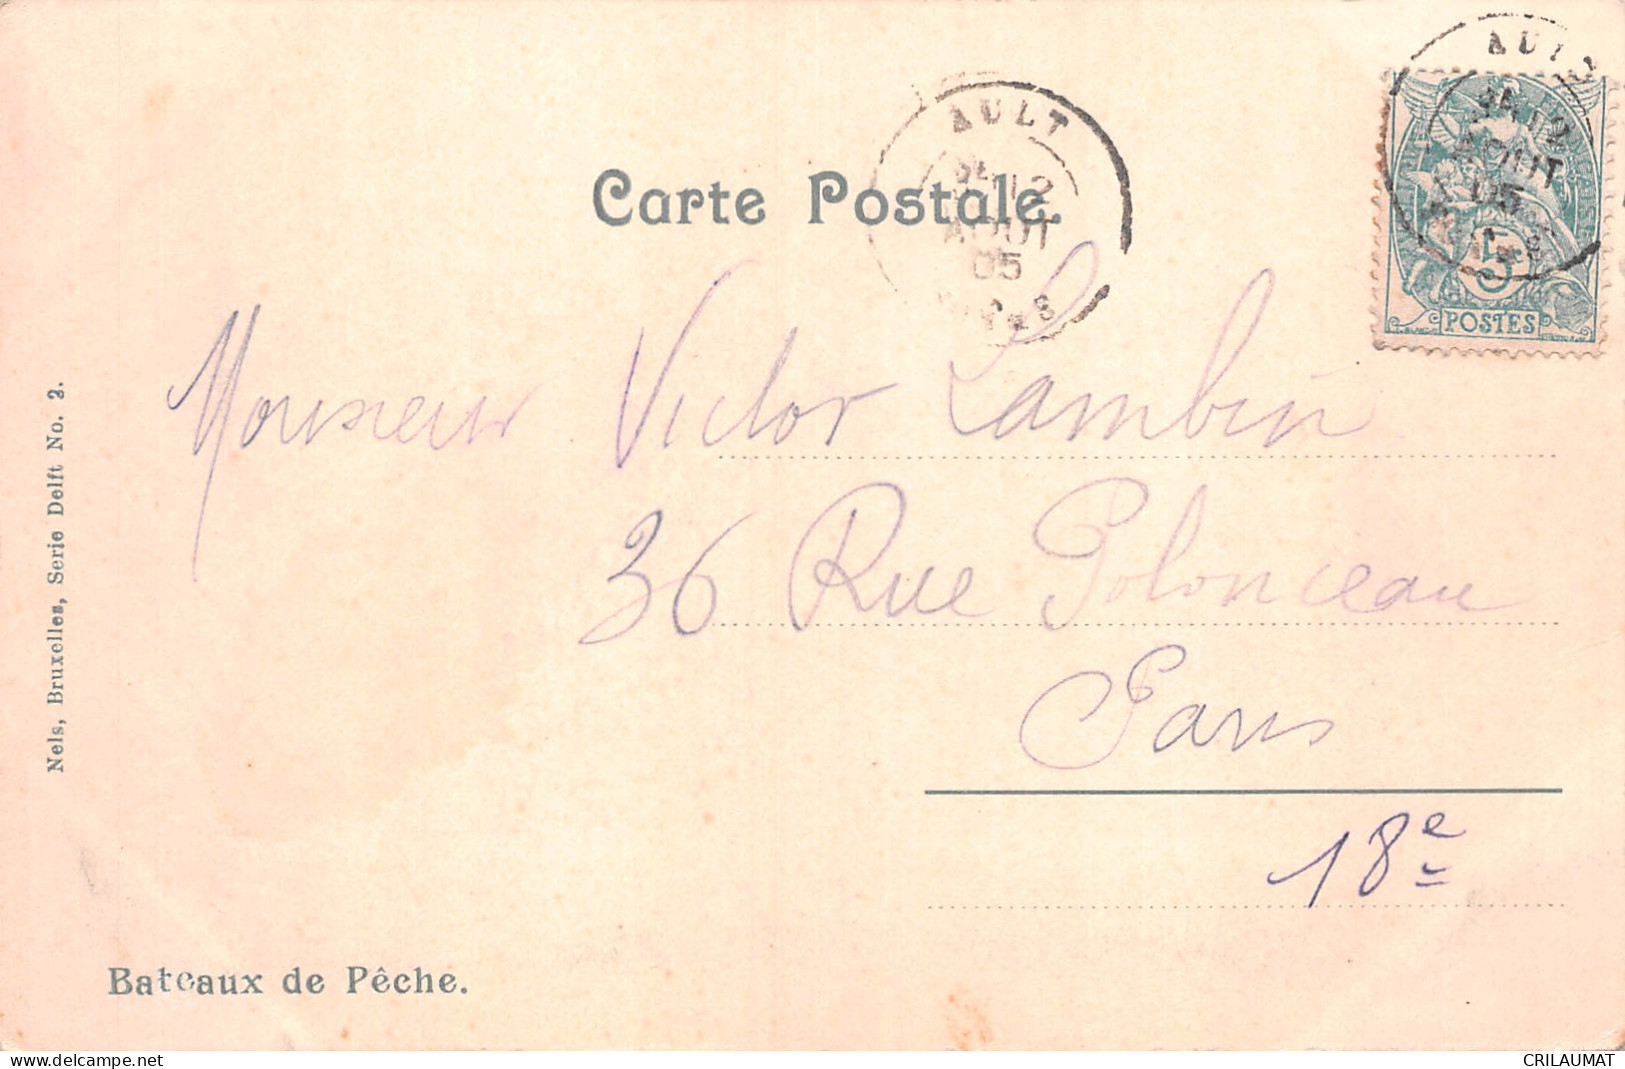 AULT
12
AOUT
05
AULT
12
AOUT
05
5
POSTES
Carte Postale.
Monsieur Victor Lambin
36 Rue Polonceau
Paris
18e
Nels, Bruxelles, Serie Delft No. 2.
Bateaux de Pêche.
delcampe.net
CRILAUMAT